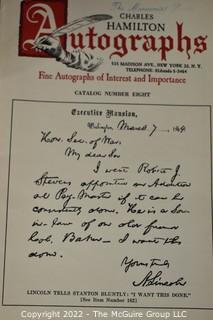 The Memorial
CHARLES
HAMILTON
Autographs
515 MADISON AVE., NEW YORK 22, N. Y.
TELEPHONE: ELdorado 5-3464
Fine Autographs of Interest and Importance
CATALOG NUMBER EIGHT
Executive Mansion,
Washington, March 7, 1864
Hon. Sec. of War.
My dear Sir
I want Robert J.
Stevens appointed an Additional
Pay-Master if it can be
consistently done. He is a son-
in-law of our old friend
Col. Baker— I want this
done.
Yours truly
A Lincoln
LINCOLN TELLS STANTON BLUNTLY: "I WANT THIS DONE."
[See Item Number 162]
Copyright 2022 - 07:39 PM